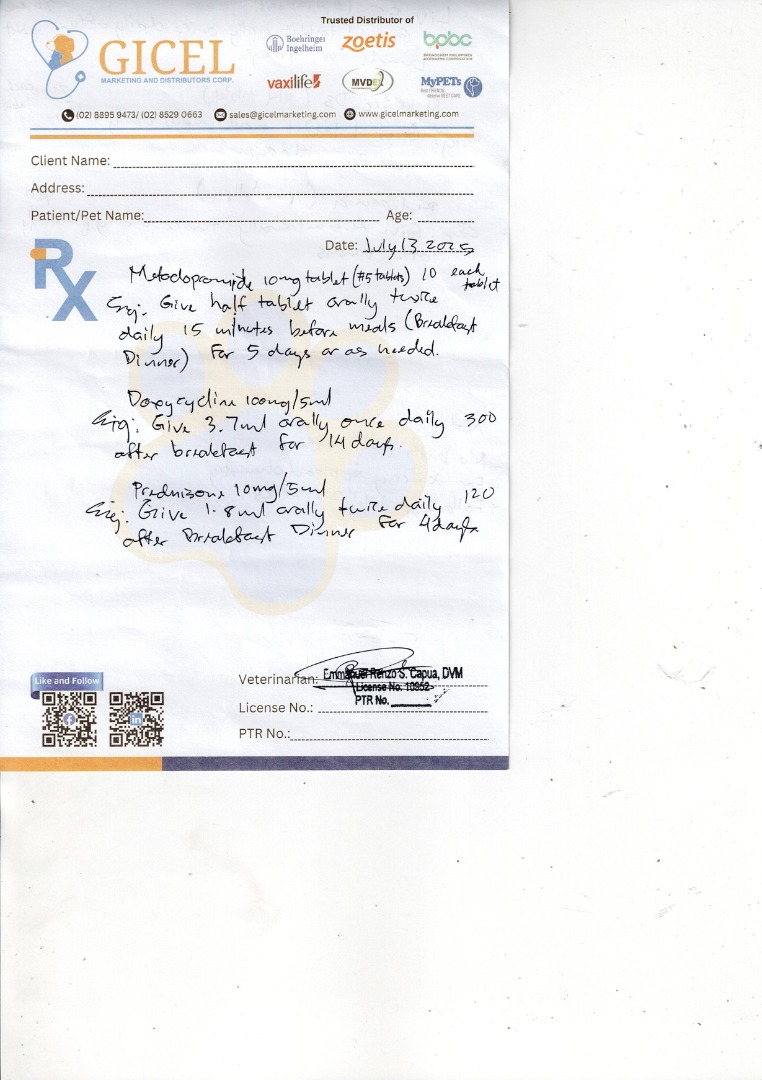 Trusted Distributor of
GICEL
MARKETING AND DISTRIBUTORS CORP.
Boehringer Ingelheim
zoetis
bpbc
vaxilife
MVD
MyPETs
(02) 8895 9473/ (02) 8529 0663 sales@gicelmarketing.com www.gicelmarketing.com
Client Name:
Address:
Patient/Pet Name: Age:
Date: July 13 2025
Rx
Metoclopromide 10mg tablet (#5 tablets) 10 each tablet
Sig: Give half tablet orally twice
daily 15 minutes before meals (Breakfast
Dinner) For 5 days or as needed.
Doxycycline 100mg/5ml
Sig: Give 3.7ml orally once daily 300
after breakfast for 14 days.
Prednisone 10mg/5ml 120
Sig: Give 1.8ml orally twice daily
after Breakfast Dinner For 4 days
Like and Follow
Veterinarian: Emmanuel Renzo S. Capua, DVM
License No. 10952
PTR No.
License No.:
PTR No.: